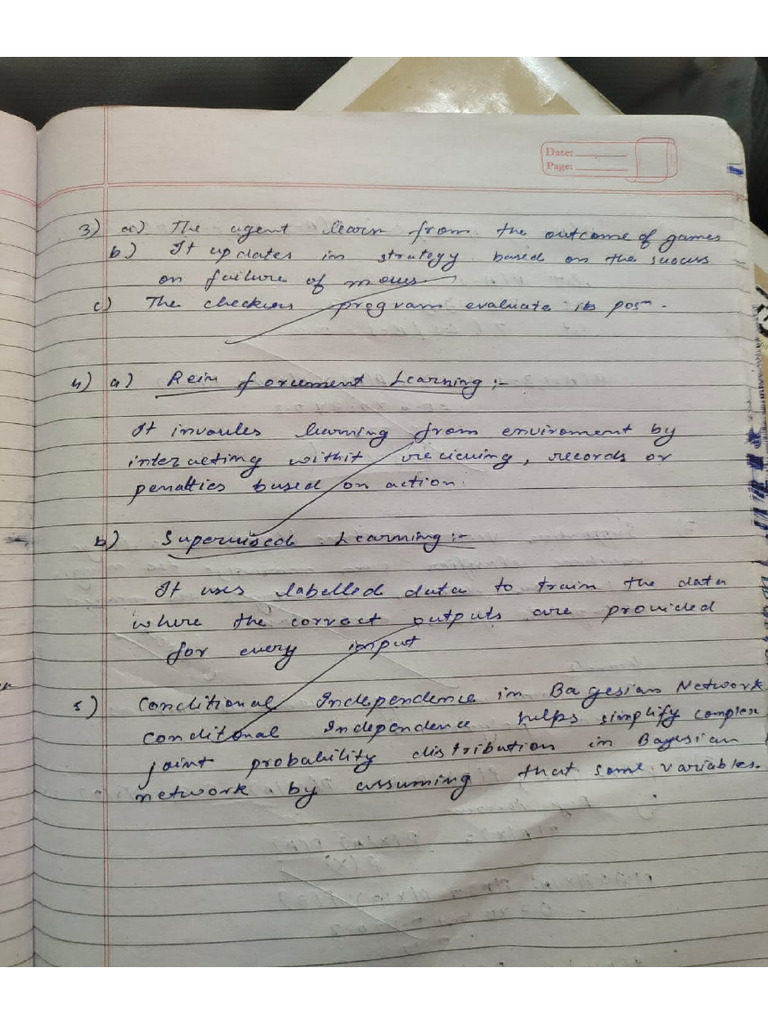 Date:
Page:
3) a) The agent learn from the outcome of games
b) It updates in strategy based on the success
on failure of moves
c) The checkers program evaluate its pos.
4) a) Reinforcement Learning :-
It invovles learning from enviroment by
interacting withit reciening, records or
penalties based on action.
b) Supervised Learning :-
It uses labelled data to train the data
where the correct outputs are provided
for every input
5) Conditional Independence in Bayesian Network
conditonal Independence helps simplify complex
joint probability distribution in Bayesian
network by assuming that some variables.